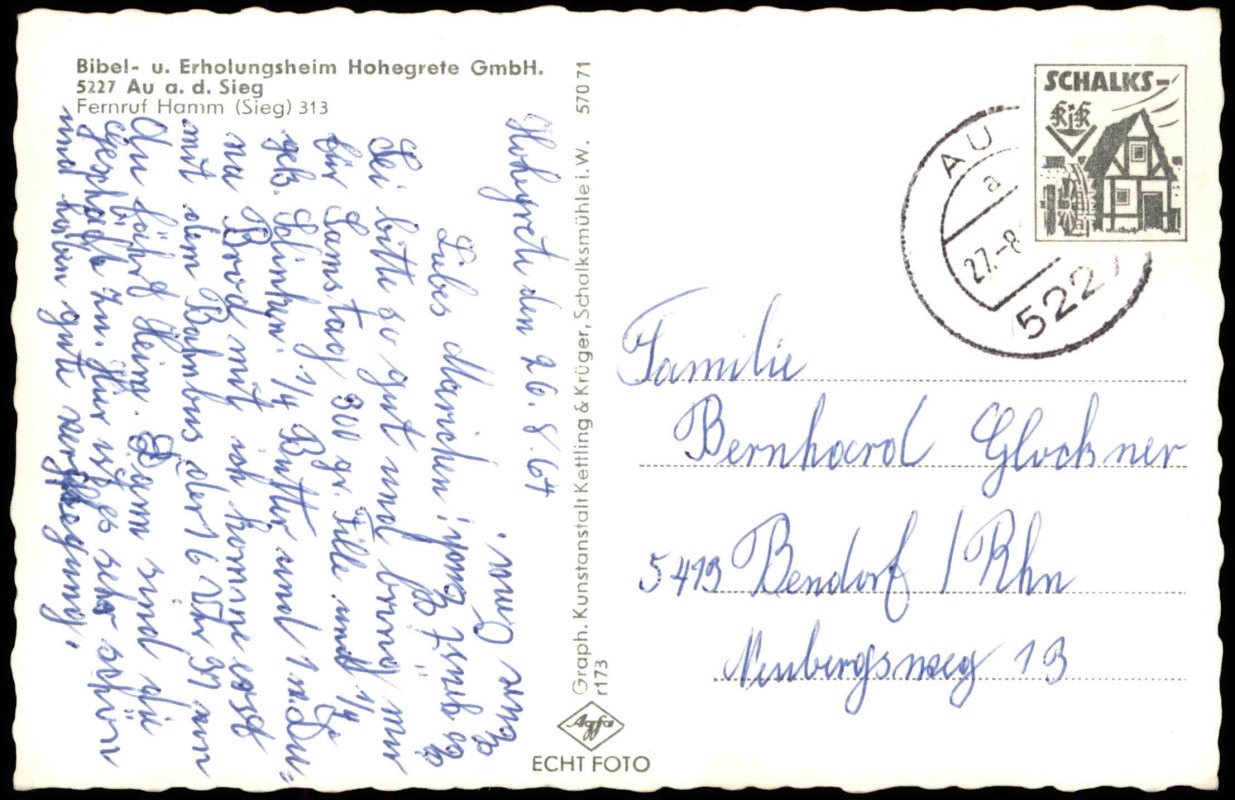 Bibel- u. Erholungsheim Hohegrete GmbH.
5227 Au a. d. Sieg
Fernruf Hamm (Sieg) 313
Hohegrete den 26.8.64
Liebes Mariechen!
Sei bitte so gut und bring mir
für Samstag 300 gr. Fille und 1/4
gek. Schinken. 1/4 Butter und 1
Brod mit ich komme erst
mit dem Bahnbus der 16 Uhr 37 am
du fährt Heim. Dann sind die
Geschäfte zu. Hier ist es sehr schön
und haben gute verpflegung.
Es grüßt Euch
Eure Oma.
Graph. Kunstanstalt Kettling & Krüger, Schalksmühle i. W. 570 71
r173
Agfa
ECHT FOTO
SCHALKS-
KiK
AU
a
27.-8
522
Familie
Bernhard Glockner
5413 Bendorf / Rhn
Neubergsweg 13